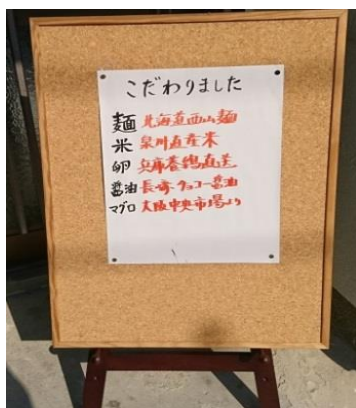 こだわりました
麺 北海道西山麺
米 泉川直産米
卵 兵庫養鶏直送
醤油 長崎チョーコー醤油
マグロ 大阪中央市場より